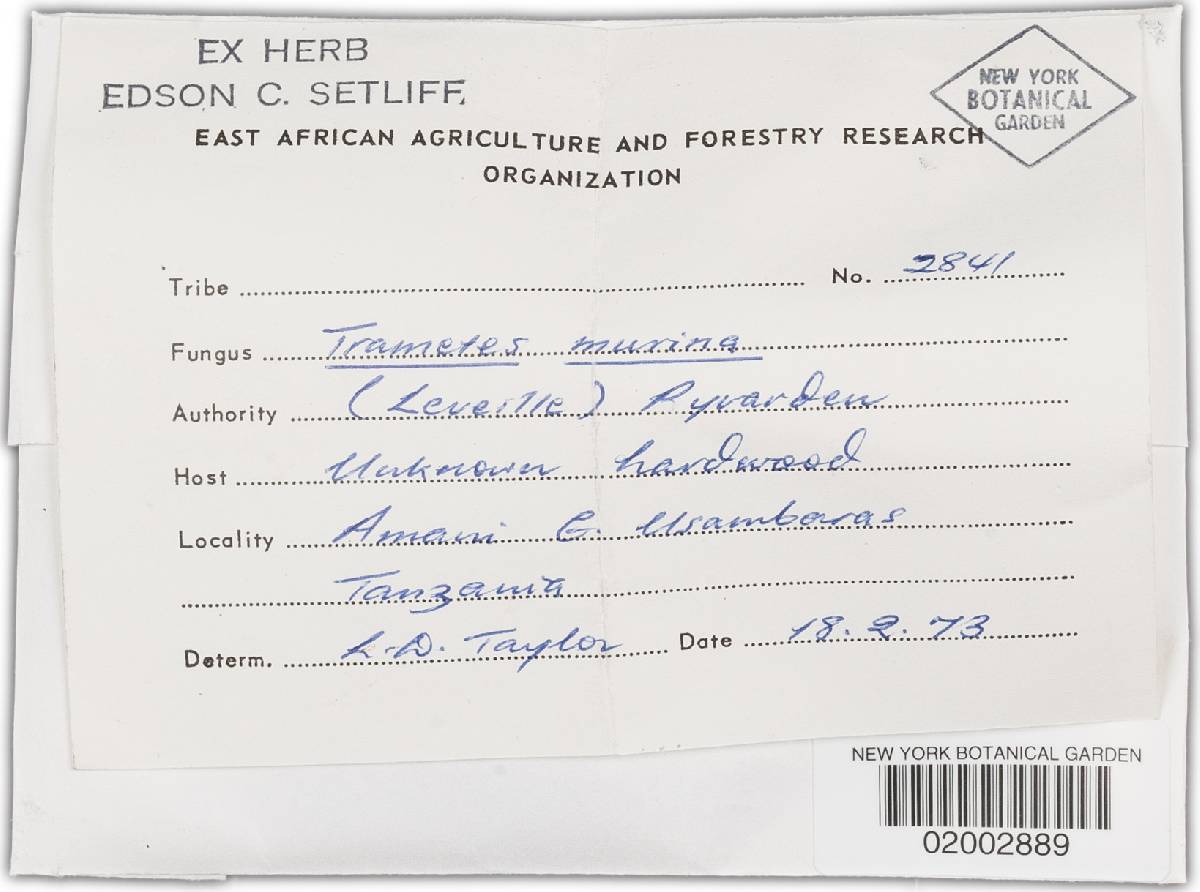 EX HERB
EDSON C. SETLIFF,
NEW YORK
BOTANICAL
GARDEN
EAST AFRICAN AGRICULTURE AND FORESTRY RESEARCH
ORGANIZATION
Tribe No. 2841
Fungus Trametes murina
Authority (Leveille) Ryvarden
Host Unknown hardwood
Locality Amani E. Usambaras
Tanzania
Determ. L.D. Taylor Date 18.2.73
NEW YORK BOTANICAL GARDEN
02002889